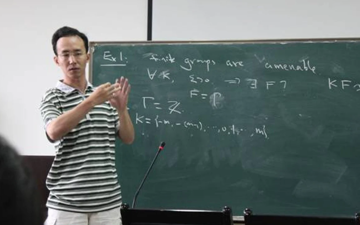 Ex1. Finite groups are amenable
∀K, ε>0 ⇒ ∃ F?
F = Γ
KF
Γ = ℤ
K = {-m, -(m-1), ..., 0, 1, ... m}